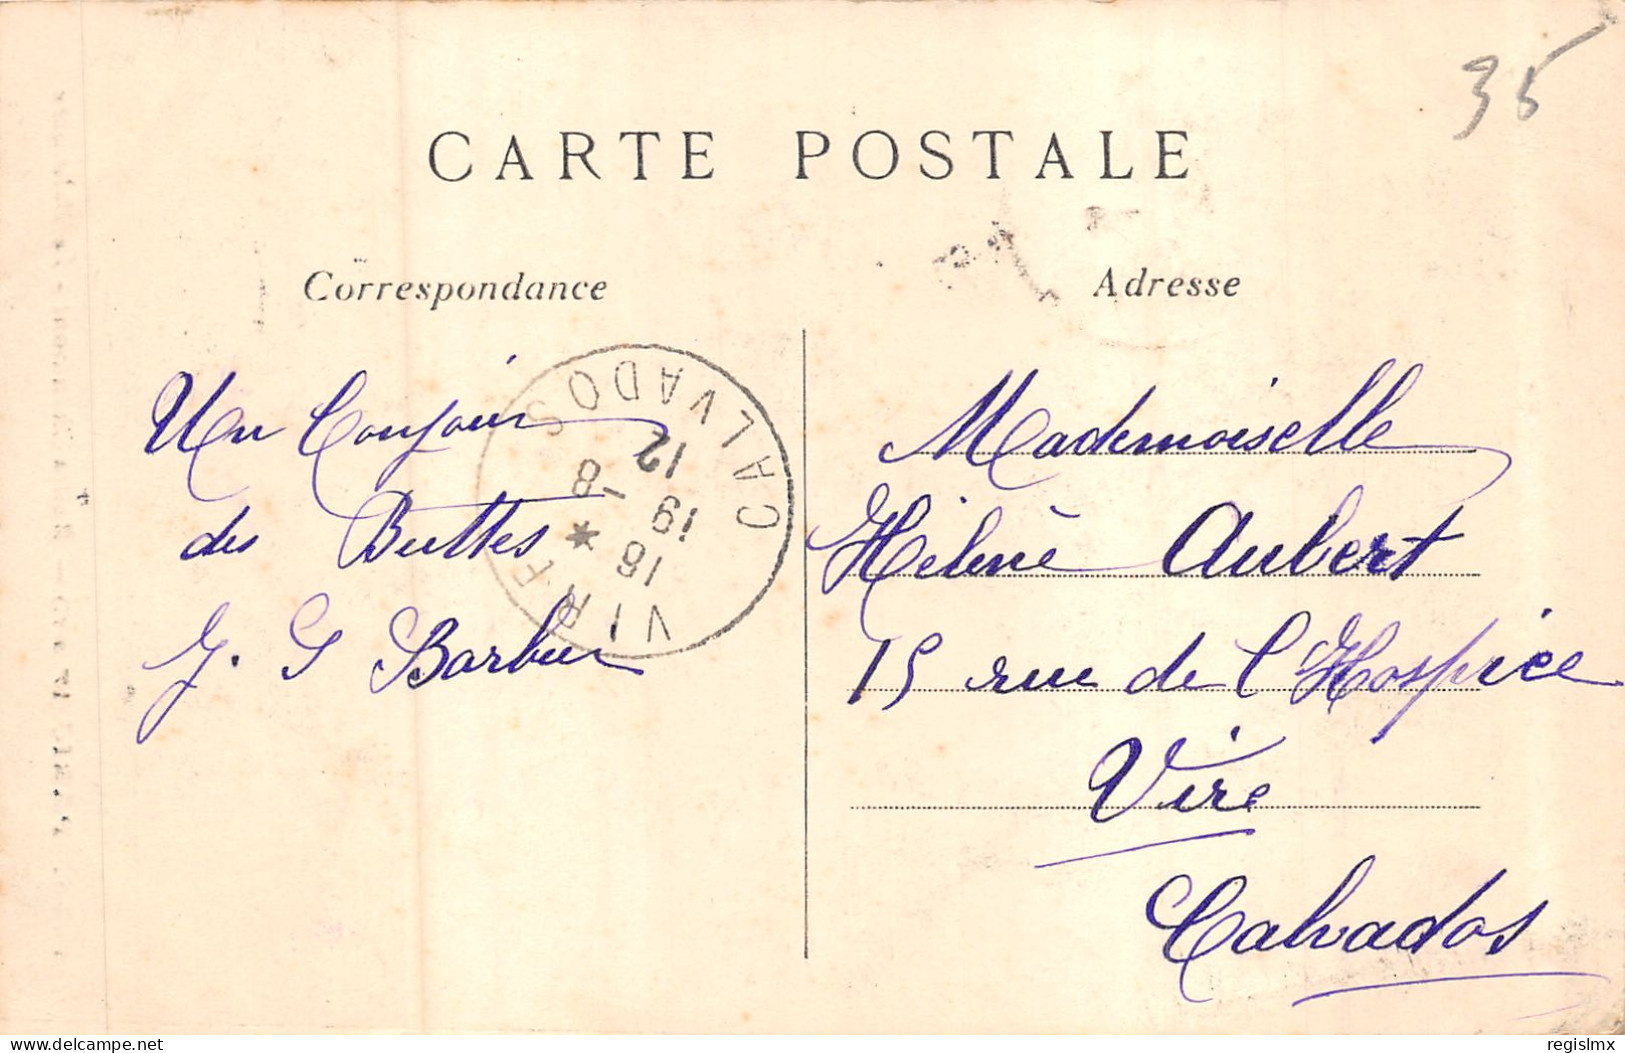 35
CARTE POSTALE
Correspondance
Adresse
Un Conjoin
des Buttes
J. G Barbier
CALVADOS
12
-8
19
16
*
VIRE
Mademoiselle
Hélène Aubert
15 rue de l'Hospice
Vire
Calvados
www.delcampe.net
regislmx